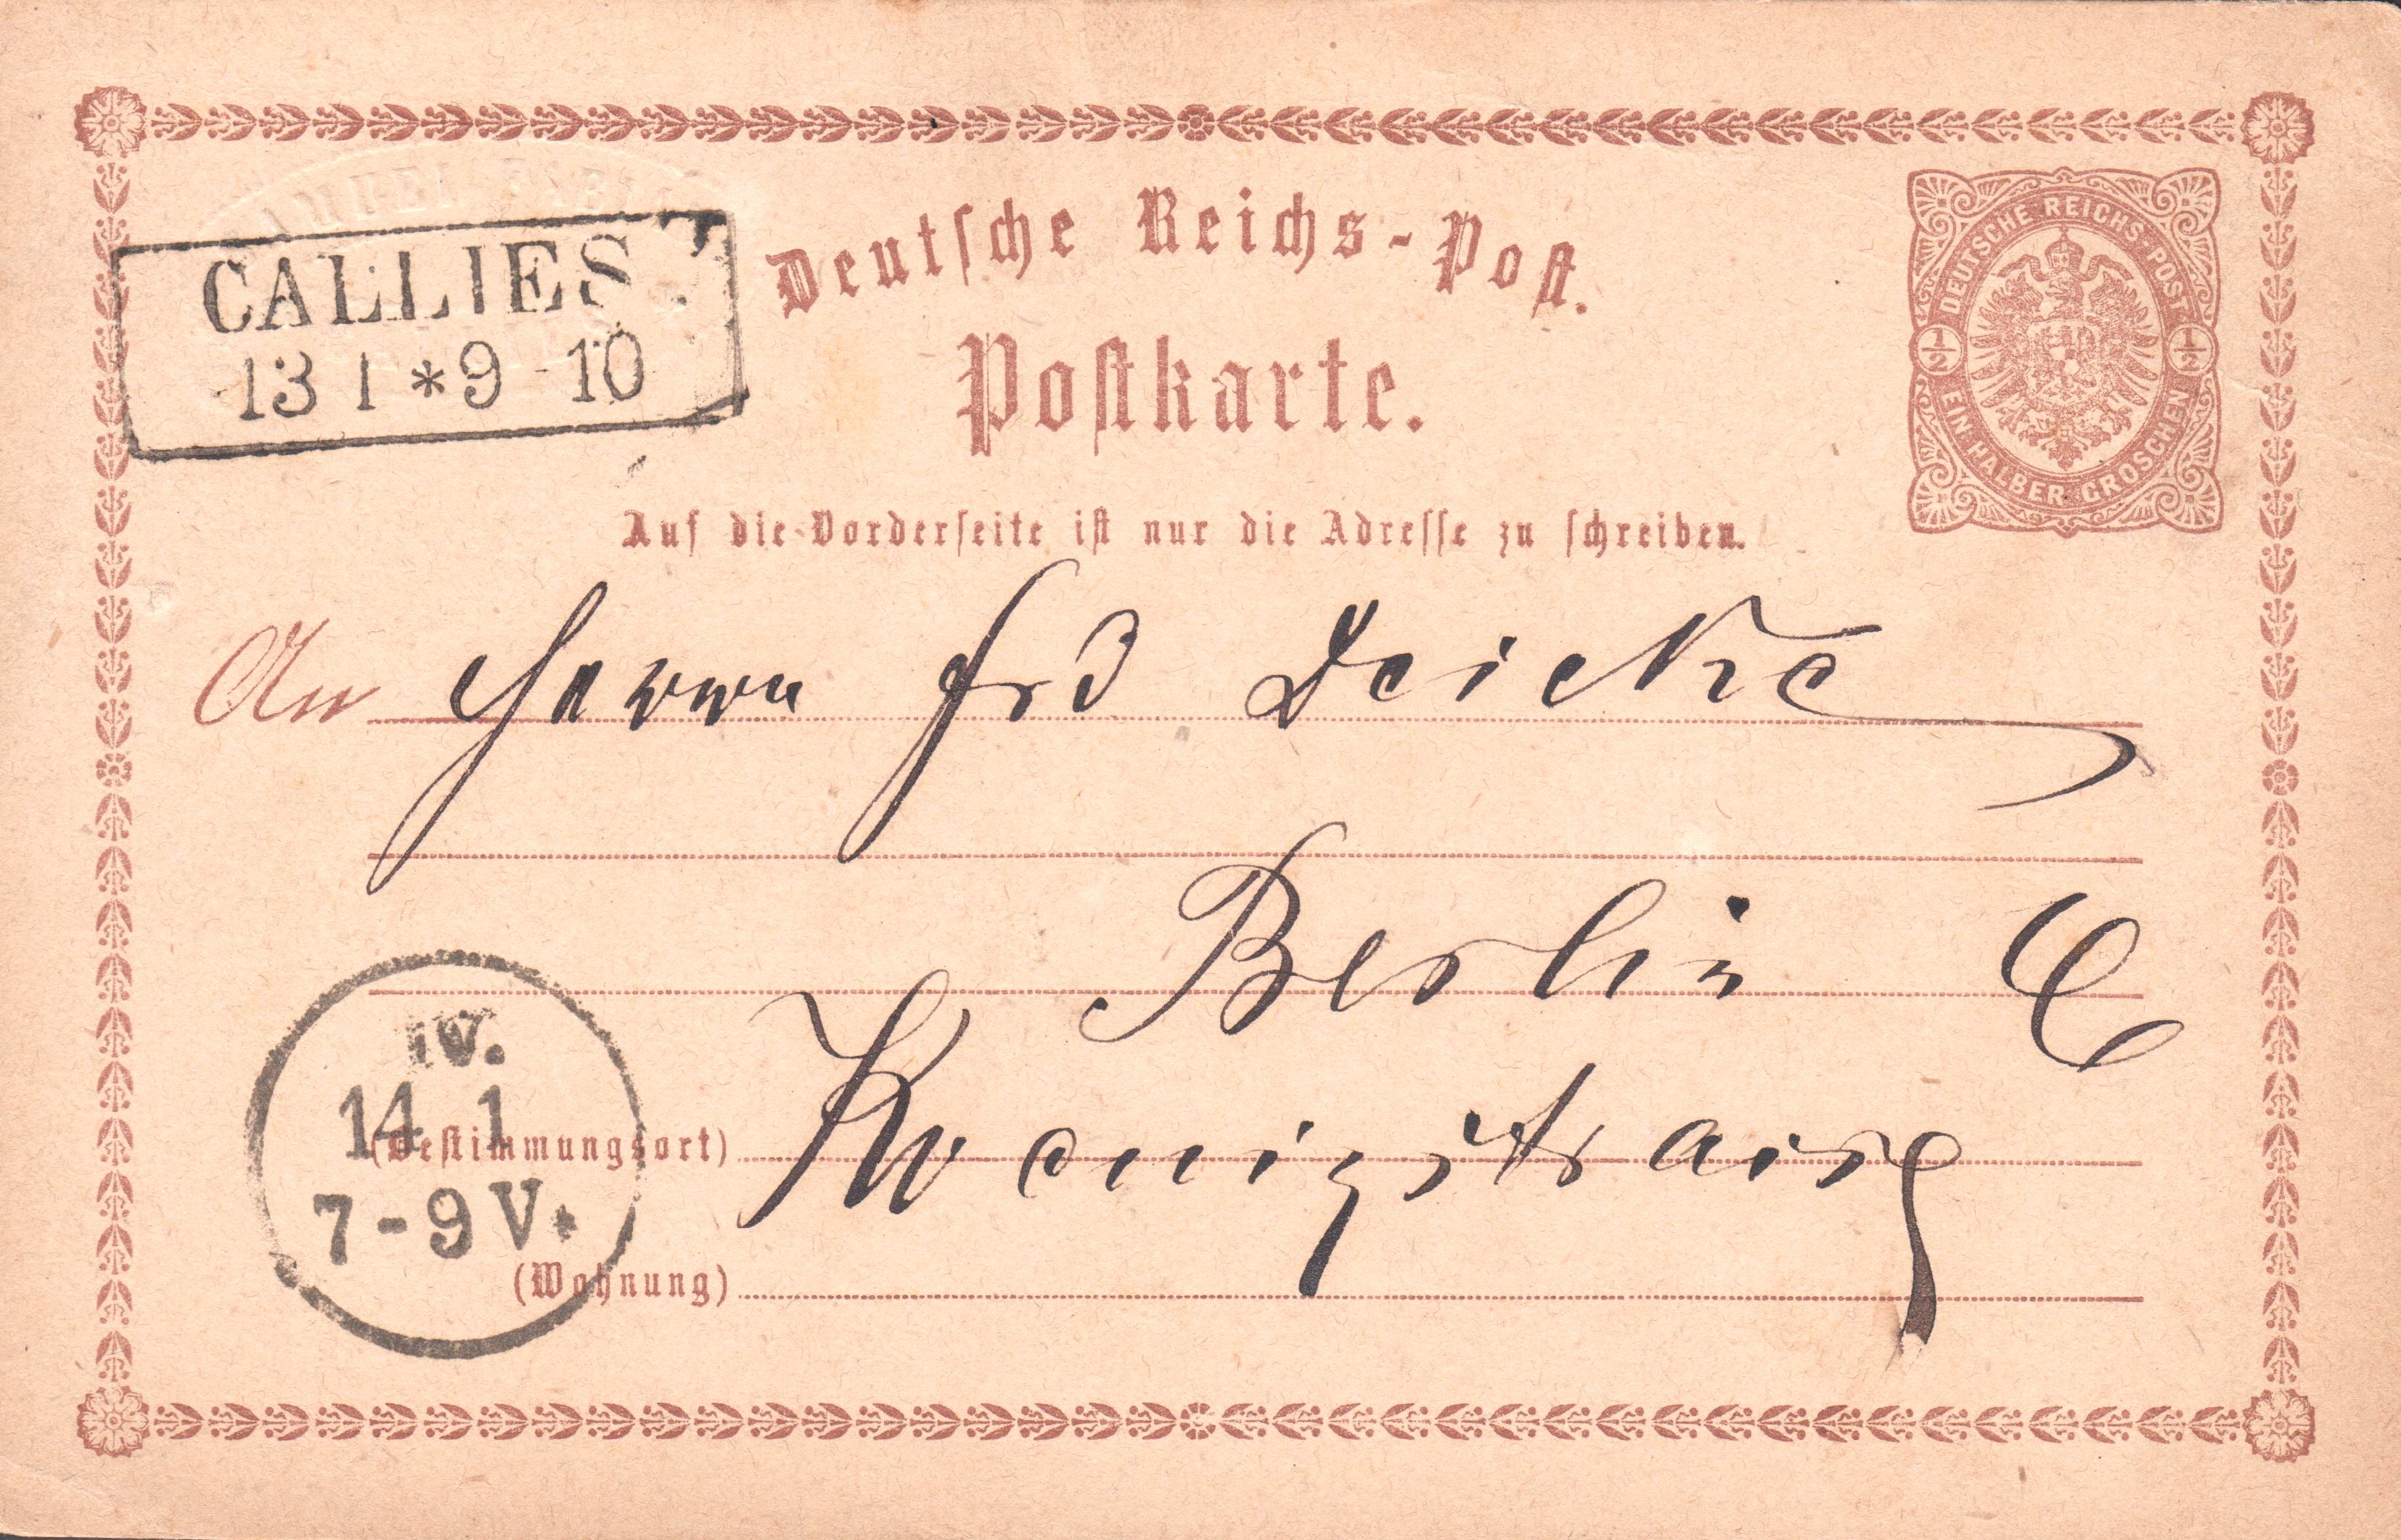 CALLIES
13 1 * 9-10
Deutsche Reichs-Post.
Postkarte.
DEUTSCHE REICHS-POST
1/2 1/2
EIN HALBER GROSCHEN
Auf die Vorderseite ist nur die Adresse zu schreiben.
An Herrn Frd Deicke
Berlin C
IV.
14 1
7-9V.*
(Bestimmungsort)
(Wohnung)